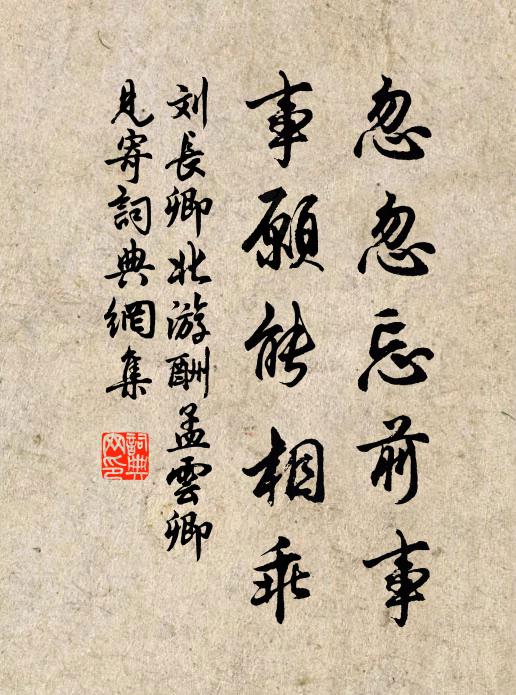 忽忽忘前事
事願能相乖
刘長卿北游酬孟雲卿
見寄詞典網集
詞典
网印